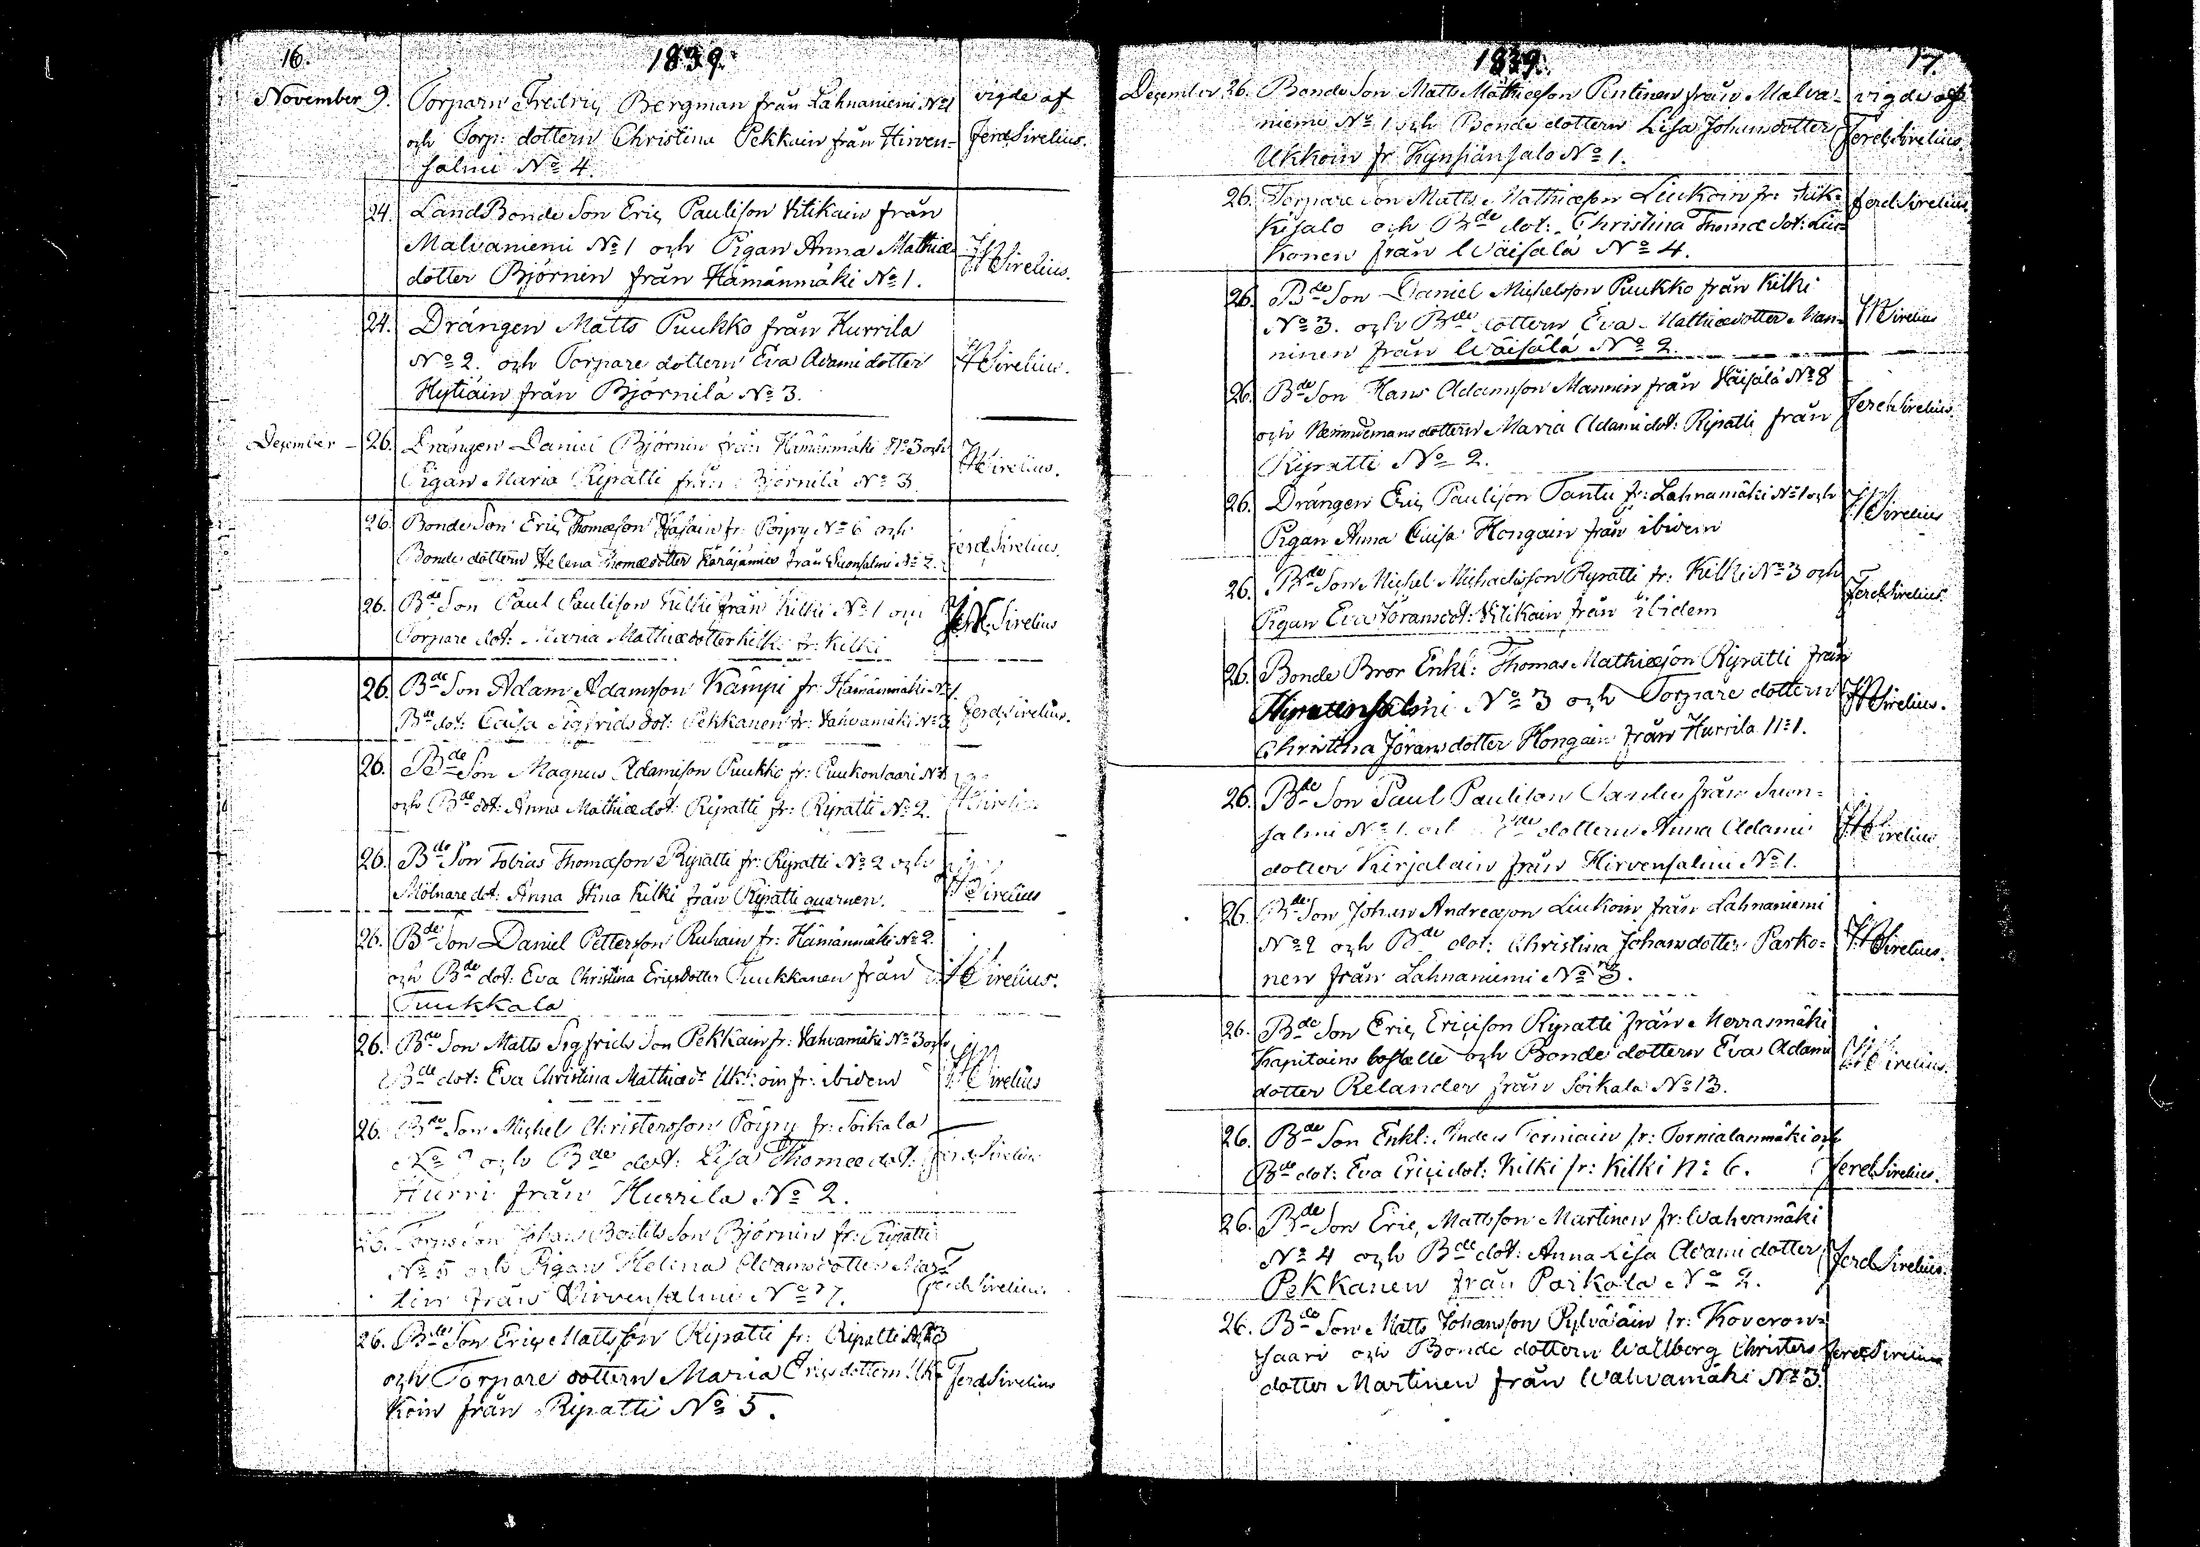 16.
1839.
November 9. Torparn Fredric Bergman från Lahnaniemi No 1 vigde af
och Torp: dottern Christina Pekkain från Hirven= Ferd. Sirelius.
salmi No 4.
24. LandBonde Son Eric Paulison Vitikain från
Malvaniemi No 1 och Pigan Anna Mathiæ
dotter Björnin från Hämänmäki No 1. Sirelius.
24. Drängen Matts Puukko från Hurrila
No 2. och Torpare dottern Eva Adami dotter Sirelius.
Hytiäin från Björnilä No 3.
December 26. Drängen Daniel Björnin från Hämänmäki No 3 och
Pigan Maria Ripatti från Björnilä No 3. Sirelius.
26. Bonde Son Eric Thomæson från Pöyry No 6 och
Bonde dottern Helena Thomædotter från Suonsalmi No 2. Ferd. Sirelius.
26. Bde Son Paul Paulison Kilki från Kilki No 1 och
Torpare dot: Maria Mathiædotter Kilki fr: Kilki Sirelius
26. Bde Son Adam Adamsson Kämpi fr: Hämänmäki No 1.
Bde dot: Caisa Sigfrids dot: Pekkanen fr: Vahvamäki No 3 Ferd. Sirelius.
26. Bde Son Magnus Adamison Puukko fr: Puukonsaari No 1
och Bde dot: Anna Mathiæ dot: Ripatti fr: Ripatti No 2. Sirelius
26. Bde Son Tobias Thomæson Ripatti fr: Ripatti No 2 och
Mölnare dot: Anna Stina Kilki från Ripatti quarnen. Sirelius
26. Bde Son Daniel Petterson Ruhain fr: Hämänmäki No 2.
och Bde dot: Eva Christina Ericsdotter Tuukkanen från Sirelius.
Tuukkala
26. Bde Son Matts Sigfrids Son Pekkain fr: Vahvamäki No 3 och
Bde dot: Eva Christina Mathiæ dt Ukkoin fr: ibidem Sirelius
26. Bde Son Michel Christersson Pöyry fr: Soikala
No och Bde dot: Lisa Thomæ dot: Ferd. Sirelius
Hurri från Hurrila No 2.
26. Torp: Son Johan Bertils Son Björnin fr: Ripatti
No 5 och Pigan Helena Adamsdotter Mar=
tin från Hirvensalmi No 7. Ferd. Sirelius.
26. Bde Son Eric Mattsson Ripatti fr: Ripatti No 3
och Torpare dottern Maria Ericsdottern Uk= Ferd. Sirelius
koin från Ripatti No 5.
17.
1839.
December 26. Bonde Son Matts Mathiæson Pentinen från Malva= vigde af
niemi No 1 och Bonde dottern Lisa Johansdotter Ferd. Sirelius.
Ukkoin fr: Kynsiänsalo No 1.
26. Torpare Son Matts Mathiæson Liukoin fr: Suk= Ferd. Sirelius.
kisalo och Bde dot: Christina Thomæ dot: Liu=
konen från Wäisälä No 4.
26. Bde Son Daniel Michelsson Puukko från Kilki
No 3. och Bde dottern Eva Mathiædotter Man= Sirelius
ninen från Wäisälä No 2.
26. Bde Son Hans Adamson Mannin från Väisälä No 8
och Nämndemans dottern Maria Adami dot: Ripatti från Ferd. Sirelius.
Ripatti No 2.
26. Drängen Eric Paulison Tantu fr: Lahnamäki No 1 och
Pigan Anna Caisa Hongain från ibidem Sirelius
26. Bde Son Michel Michaelisson Ripatti fr: Kilki No 3 och
Pigan Eva Göransdot: Vitikain från ibidem Ferd. Sirelius.
26. Bonde Bror Enkl: Thomas Mathiæson Ripatti från
No 3 och Torpare dottern Sirelius.
Christina Göransdotter Hongain från Hurrila No 1.
26. Bde Son Paul Paulison från Suon=
salmi No 1. och Bde dottern Anna Adami Sirelius
dotter Kirjalain från Hirvensalmi No 1.
26. Bde Son Johan Andreæson Liukoin från Lahnaniemi
No 2 och Bde dot: Christina Johansdotter Parko= Sirelius.
nen från Lahnaniemi No 3.
26. Bde Son Eric Ericison Ripatti från Herrasmäki
Kapitains boställe och Bonde dottern Eva Adami Sirelius.
dotter Relander från Soikala No 13.
26. Bde Son Enkl: Anders Torniain fr: Tornialanmäki och
Bde dot: Eva Erici dot: Kilki fr: Kilki No 6. Ferd. Sirelius.
26. Bde Son Eric Mattsson Martinen fr: Wahvamäki
No 4 och Bde dot: Anna Lisa Adami dotter Ferd. Sirelius.
Pekkanen från Soikala No 2.
26. Bde Son Matts Johansson Pylväläin fr: Koveron=
saari och Bonde dottern Wallborg Christers Ferd. Sirelius
dotter Martinen från Wahvamäki No 3.